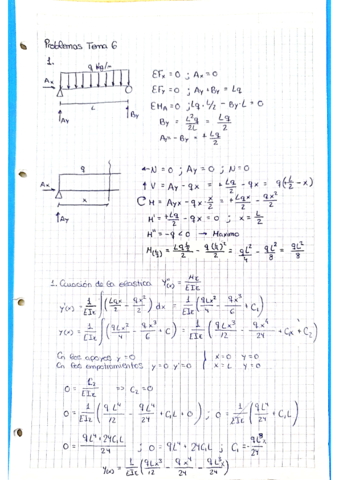 Problemas Tema 6
1.
q kg/m
Ax
L
Ay
By
ΣFx = 0 ; Ax = 0
ΣFy = 0 ; Ay + By = Lq
ΣMA = 0 ; Lq · L/2 - By · L = 0
By = L²q/2L = Lq/2
Ay = - By = + Lq/2
q
Ax
x
Ay
N = 0 ; Ay = 0 ; N = 0
V = Ay - qx = + Lq/2 - qx = q(L/2 - x)
M = Ay x - qx · x/2 = + Lqx/2 - qx²/2
M' = + Lq/2 - qx = 0 ; x = L/2
M'' = - q < 0 → Maximo
qL²/4 - qL²/8 = qL²/8
1. Ecuación de la elástica
y'(x) = 1/EIz ∫(Lqx/2 - qx²/2) dx = 1/EIz (qLx²/4 - qx³/6 + C1)
y(x) = 1/EIz ∫(qLx²/4 - qx³/6 + C) = 1/EIz (qLx³/12 - qx⁴/24 + C1x + C2)
En los apoyos y = 0
En los empotramientos y = 0 y' = 0
x = 0 y = 0
x = L y = 0
0 = C2/EIz => C2 = 0
0 = 1/EIz (qL⁴/12 - qL⁴/24 + C1L + 0) ; 0 = 1/EIz (qL⁴/24 + C1L)
0 = qL⁴ + 24C1L/24 ; 0 = qL⁴ + 24C1L ; C1 = - qL³/24
y(x) = 1/EIz (qLx³/12 - qx⁴/24 - qL³x/24)